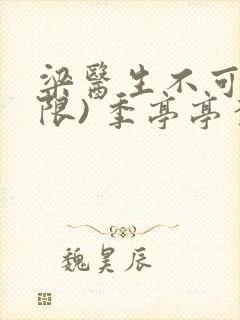 梁醫生不可
限) 季亭亭
魏昊辰